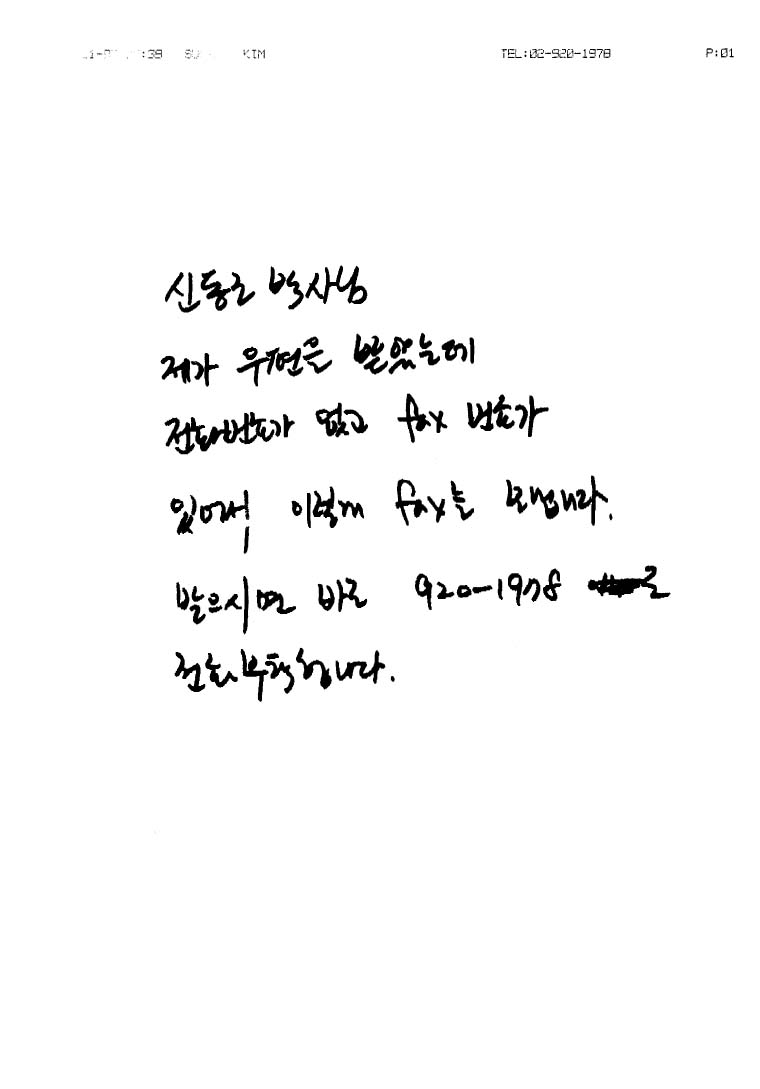 KIM TEL:02-920-1978 P:01
신동조 박사님
제가 우편을 받았는데
전화번호가 없고 fax 번호가
있어서 이렇게 fax를 보냅니다.
받으시면 바로 920-1978 로
전화 부탁합니다.